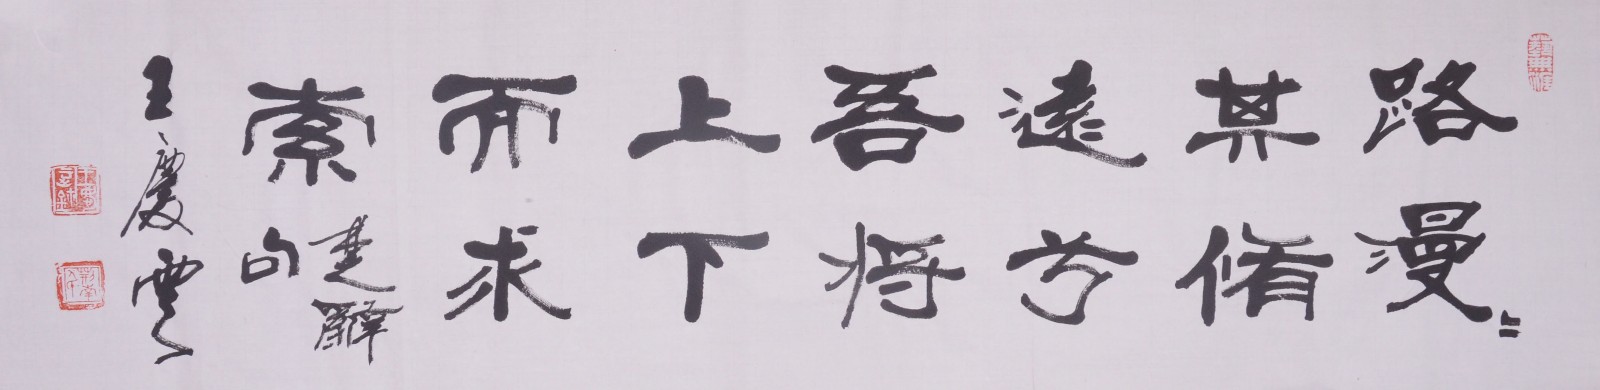 路漫〻
其脩
遠兮
吾將
上下
而求
索
楚辭
句
王慶雲